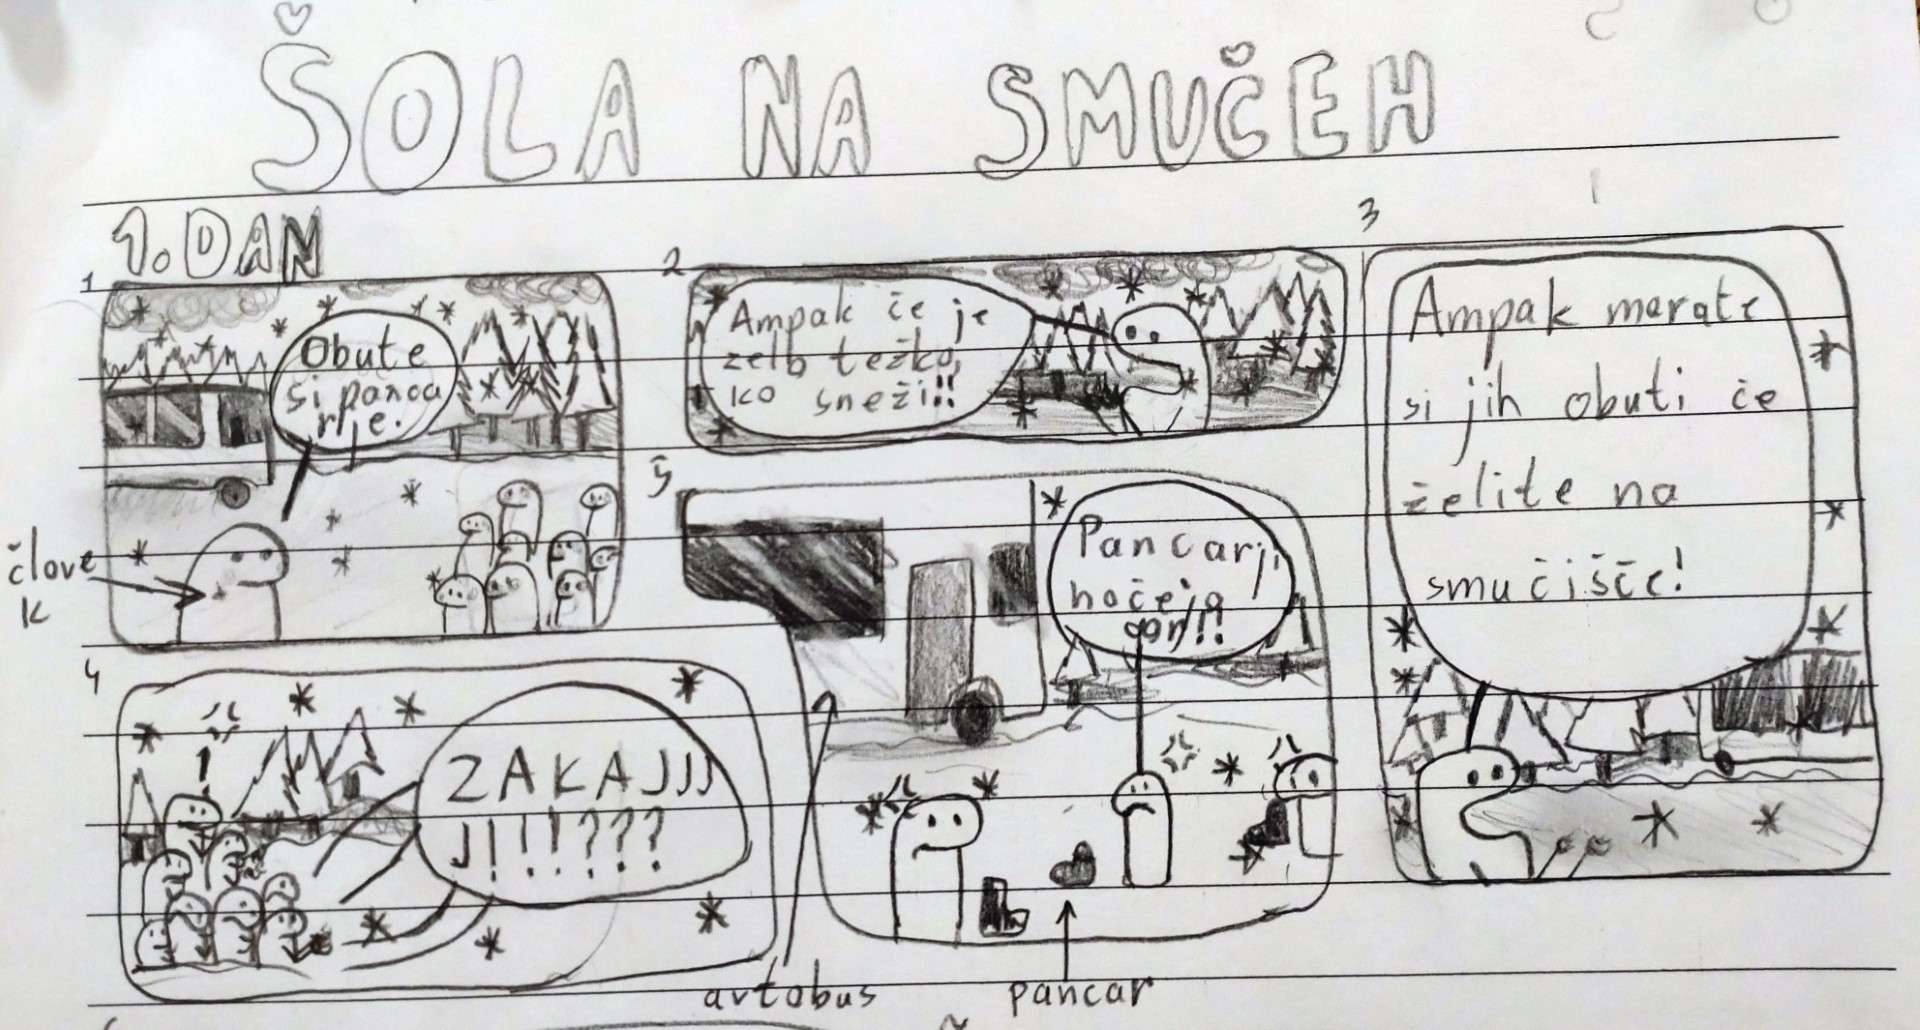 ŠOLA NA SMUČEH
1. DAN
1
Obute
si panca
rje.
člove
k
2
Ampak če je
zelo težko,
ko sneži!!
3
Ampak morate
si jih obuti če
želite na
smučišče!
4
ZAKAJJJ
J!!!???
5
Pancarji
nočejo
gor!!
avtobus
pancar